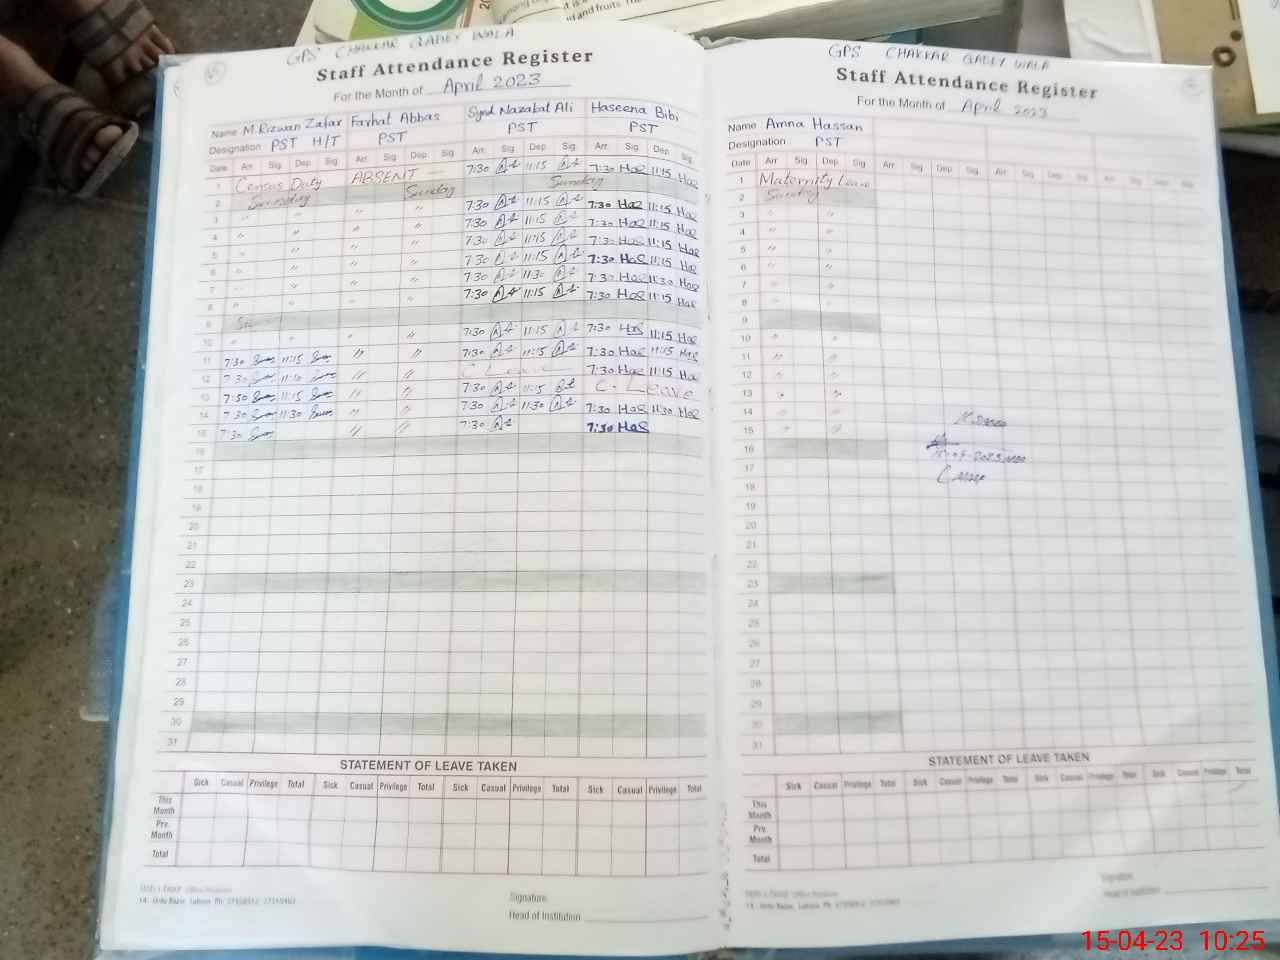 GPS CHAKKAR GADEY WALA
Staff Attendance Register
For the Month of April 2023
Name M Rizwan Zafar Farhat Abbas Syed Nazakat Ali Haseena Bibi
Designation PST H/T PST PST PST
Date Arr. Sig Dep Sig Arr. Sig Dep. Sig Arr. Sig. Dep. Sig Arr. Sig. Dep. Sig.
1 Census Duty ABSENT 7:30 11:15 7:30 Has 11:15 Has
2 Sunday Sunday Sunday
3 " " " " 7:30 11:15 7:30 Has 11:15 Has
4 " " " " 7:30 11:15 7:30 Has 11:15 Has
5 " " " " 7:30 11:15 7:30 Has 11:15 Has
6 " " " " 7:30 11:15 7:30 Has 11:15 Has
7 " " " " 7:30 11:30 7:30 Has 11:30 Has
8 " " " " 7:30 11:15 7:30 Has 11:15 Has
9
10 " " " " 7:30 11:15 7:30 Has 11:15 Has
11 7:30 11:15 " " 7:30 11:15 7:30 Has 11:15 Has
12 7:30 " " C Leave 7:30 Has 11:15 Has
13 7:30 11:15 " " 7:30 11:15 C. Leave
14 7:30 11:30 " " 7:30 11:30 7:30 Has 11:30 Has
15 7:30 " " 7:30 7:30 Has
16
17
18
19
20
21
22
23
24
25
26
27
28
29
30
31
STATEMENT OF LEAVE TAKEN
Sick Casual Privilege Total Sick Casual Privilege Total Sick Casual Privilege Total Sick Casual Privilege Total
This Month
Pre. Month
Total
Signature
Head of Institution
14 - Urdu Bazar, Lahore. Ph:
GPS CHAKKAR GADEY WALA
Staff Attendance Register
For the Month of April 2023
Name Amna Hassan
Designation PST
Date Arr. Sig Dep. Sig Arr. Sig Dep Sig Arr Sig Dep Sig Arr Sig Dep Sig
1 Maternity Leave
2 Sunday
3 " "
4 " "
5 " "
6 " "
7 " "
8 " "
9
10 " "
11 " "
12 " "
13 " "
14 " "
15 " "
16
17
18
19
20
21
22
23
24
25
26
27
28
29
30
31
STATEMENT OF LEAVE TAKEN
Sick Casual Privilege Total Sick Casual Privilege Total Sick Casual Privilege Total Sick Casual Privilege Total
This Month
Pre. Month
Total
Signature
Head of Institution
15-04-23 10:25